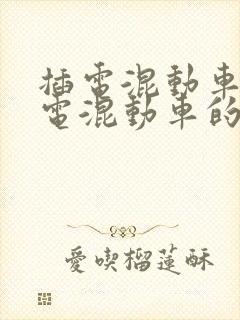 插電混動車
電混動車的
愛喫榴蓮酥